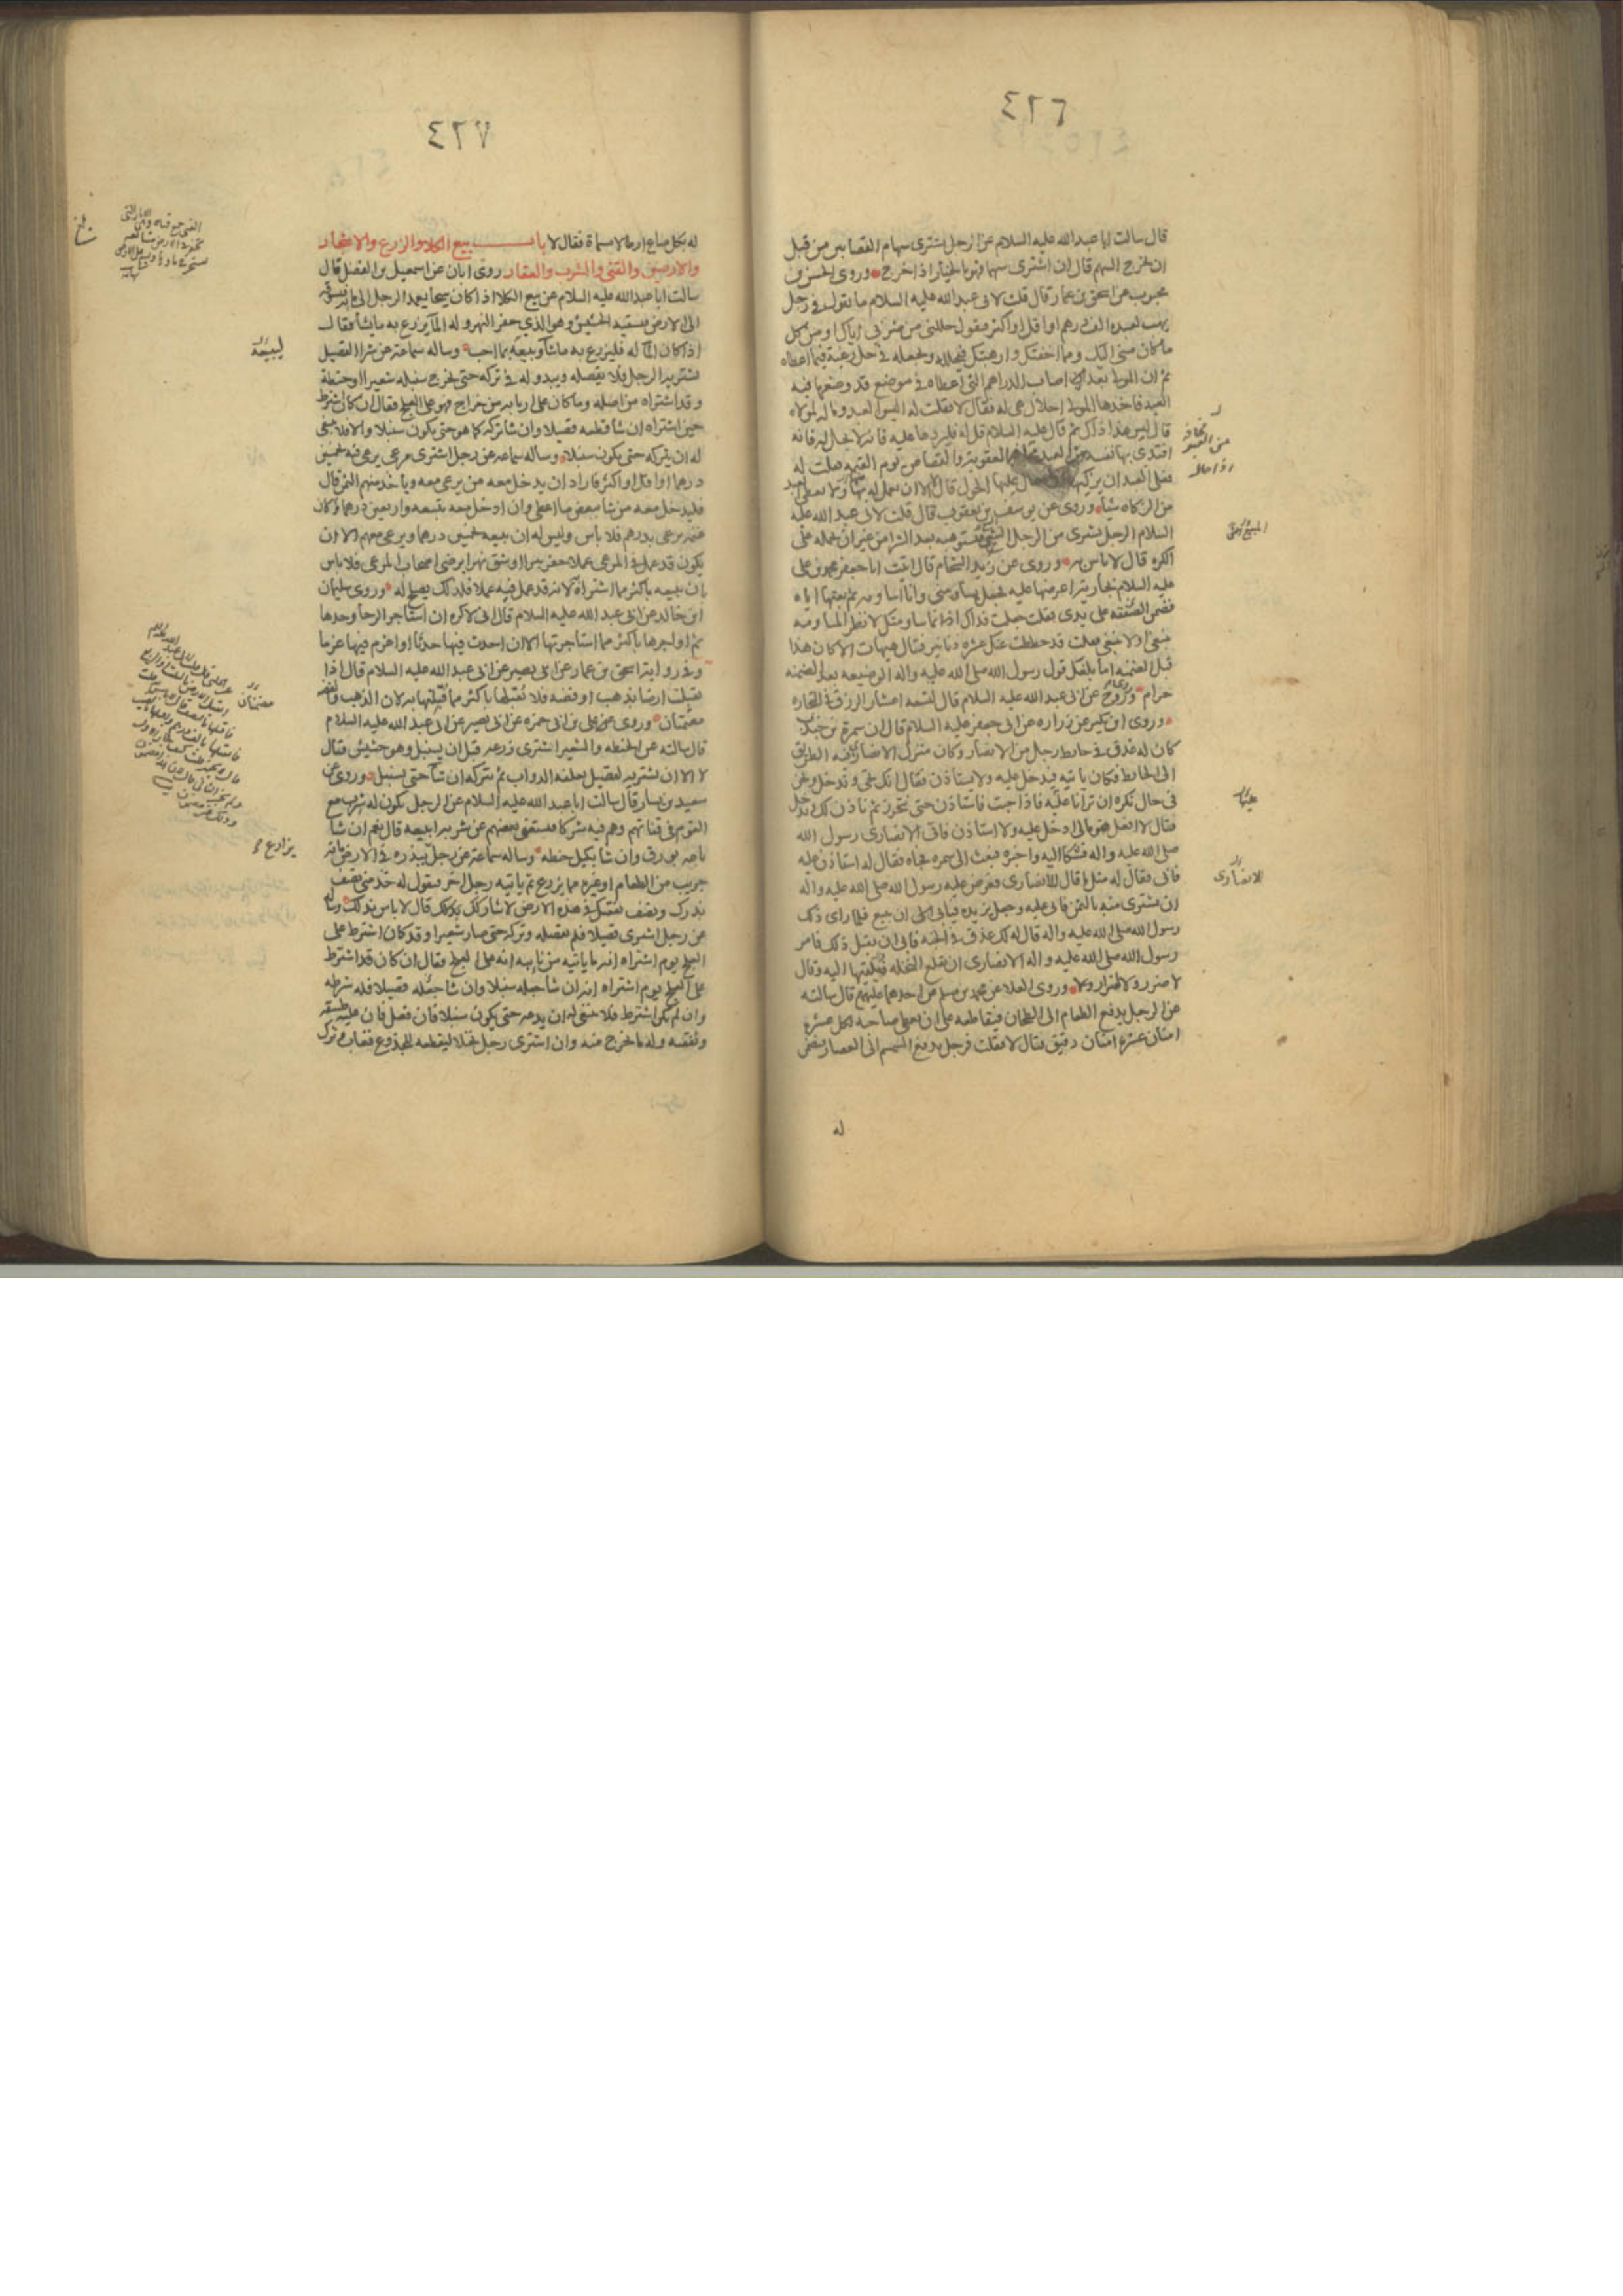 ٤٢٦
قال سالت ابا عبد الله عليه السلام عن الرجل يشترى سهام القصابين من قبل
ان يخرج السهم قال ان اشترى سهما فهو بالخيار اذا خرج وروى الحسن بن
محبوب عن اسحق بن عمار قال قلت لابى عبد الله عليه السلام ما تقول فى رجل
يهب لعبده الف درهم او اقل او اكثر فيقول حللنى من ضربى اياك او من كل
ما كان منى اليك ومما اخفتك وارهبتك فيحلله ويجعله فى حل رغبة فيما اعطاه
ثم ان المولى بعد اصاب الدراهم التى اعطاه فى موضع قد وضعها فيه
العبد فاخذها المولى احلال هى له فقال لا فقلت له اليس العبد وماله لمولاه
قال ليس هذا ذاك ثم قال عليه السلام قل له فليردها عليه فانه لا يحل له فانه
افتدى بها نفسه من العبد مخافة العقوبة والقصاص يوم القيمة فقلت له
فعلى العبد ان يزكيها اذا حال عليها الحول قال لا الا ان يعمل له بها ولا يعطى العبد
من الزكاه شيا وروى عن يوسف بن يعقوب قال قلت لابى عبد الله عليه
السلام الرجل يشترى من الرجل البيع فيستوهبه بعد الشرا من غير ان يحمله على
الكره قال لا باس به وروى عن زيد الشحام قال اتيت ابا جعفر محمد بن على
عليه السلام بجارية اعرضها عليه فجعل يساومنى وانا اساومه ثم بعتها اياه
فضمن الصفقه على يدى فقلت جعلت فداك انما ساومتك لانظر المساومة
تنبغى او لا تنبغى فقلت قد حططت عنك عشره دنانير فقال هيهات الا كان هذا
قبل الضمنه اما بلغك قول رسول الله صلى الله عليه واله الوضيعه بعد الضمنه
حرام وروى روح عن ابى عبد الله عليه السلام قال تسعه اعشار الرزق فى التجاره
وروى ابن بكير عن زراره عن ابى جعفر عليه السلام قال ان سمرة بن جندب
كان له عذق فى حايط رجل من الانصار وكان منزل الانصارى فيه الطريق
الى الحايط فكان ياتيه فيدخل عليه ولا يستاذن فقال انك تجى وتدخل ونحن
فى حال نكره ان ترانا عليه فاذا جئت فاستاذن حتى نتحرز ثم ناذن لك وتدخل
فقال لا افعل هو مالى ادخل عليه ولا استاذن فاتى الانصارى رسول الله
صلى الله عليه واله فشكا اليه واخبره فبعث الى سمره فجاه فقال له استاذن عليه
فابى فقال له مثل ما قال للانصارى فعرض عليه رسول الله صلى الله عليه واله
ان يشترى منه بالثمن فابى عليه وجعل يزيده فيابى ان يبيع فلما راى ذلك
رسول الله صلى الله عليه واله قال له لك عذق فى الجنه فابى ان يقبل ذلك فامر
رسول الله صلى الله عليه واله الانصارى ان يقلع النخله فيلقيها اليه وقال
لا ضرر ولا ضرار وروى العلا عن محمد بن مسلم عن احدهما عليهم قال سالته
عن الرجل يدفع الطعام الى الطحان فيقاطعه على ان يعطى صاحبه لكل عشره
امنان عشره امنان دقيق فقال لا فقلت فرجل يدفع السمسم الى العصار فيضمن
له
مخافة
من العبد
اذا حال
عليها
للانصارى
٤٢٧
له بكل صاع ارطالا مسماة فقال لا باب بيع الكلا والزرع والاشجار
والارضين والقنى والشرب والعقار روى ابان عن اسمعيل بن الفضل قال
سالت ابا عبد الله عليه السلام عن بيع الكلا اذا كان سيحا يعمد الرجل الى مائه فيسوقه
الى الارض فيسقيه الحشيش وهو الذي حفر النهر وله المآ يزرع به ما يشا فقال
اذا كان المآ له فليزرع به ما شآ ويبيعه بما احب وساله سماعة عن شرا القصيل
يشتريه الرجل فلا يقصله ويبدو له فى تركه حتى يخرج سنبله شعيرا او حنطة
وقد اشتراه من اصله وما كان على اربابه من خراج فهو على العلج فقال ان كان اشترط
حين اشتراه ان شا قطعه قصيلا وان شا تركه كما هو حتى يكون سنبلا والا فلا ينبغى
له ان يتركه حتى يكون سنبلا وساله سماعه عن رجل اشترى مرعى يرعى فيه بخمسين
درهما او اقل او اكثر فاراد ان يدخل معه من يرعى معه وياخذ منهم الثمن قال
فليدخل معه من شا ببعض ما اعطى وان ادخل معه بتسعه واربعين درهما وكان
غنمه يرعى بدرهم فلا باس وليس له ان يبيعه بخمسين درهما ويرعى معهم الا ان
يكون قد عمل فى المرعى عملا حفر بيرا او شق نهرا برضى اصحاب المرعى فلا باس
بان يبيعه باكثر مما اشتراه لانه قد عمل فيه عملا فلذلك يصلح له وروى سليمان
ابن خالد عن ابى عبد الله عليه السلام قال انى لاكره ان استاجر الرحا وحدها
ثم اواجرها باكثر مما استاجرتها الا ان احدث فيها حدثا او اغرم فيها غرما
وفى رواية اسحق بن عمار عن ابى بصير عن ابى عبد الله عليه السلام قال اذا
تقبلت ارضا بذهب او فضه فلا تقبلها باكثر مما قبلتها به لان الذهب والفضه
مضمنان وروى عن على بن ابى حمزه عن ابى بصير عن ابى عبد الله عليه السلام
قال سالته عن الحنطه والشعير اشترى زرعه قبل ان يسنبل وهو حشيش فقال
لا الا ان يشتريه لقصيل يعلفه الدواب ثم يتركه ان شآ حتى يسنبل وروى عن
سعيد بن يسار قال سالت ابا عبد الله عليه السلام عن الرجل يكون له شرب مع
القوم فى قناتهم وهم فيه شركا فيستغنى بعضهم عن شربه ايبيعه قال نعم ان شا
باعه بورق وان شا بكيل حنطه وساله سماعه عن رجل يبذره فى الارض مائه
جريب من الطعام او غيره مما يزرع ثم ياتيه رجل اخر فيقول له خذ منى نصف
بذرك ونصف نفقتك فى هذه الارض لاشاركك بذلك قال لا باس بذلك وساله
عن رجل اشترى قصيلا فلم يقصله وتركه حتى صار شعيرا وقد كان اشترط على
العلج يوم اشتراه انه ما ياتيه من نايبه انه على العلج فقال ان كان قد اشترط
على العلج يوم اشتراه انه ان شا جعله سنبلا وان شا جعله قصيلا فله شرطه
وان لم يكن اشترط فلا ينبغى له ان يدعه حتى يكون سنبلا فان فعل فان عليه طسقه
ونفقته وله ما خرج منه وان اشترى رجل نخلا ليقطعه للجذوع فغاب وترك
لبيعه
مضمنان
يزارع